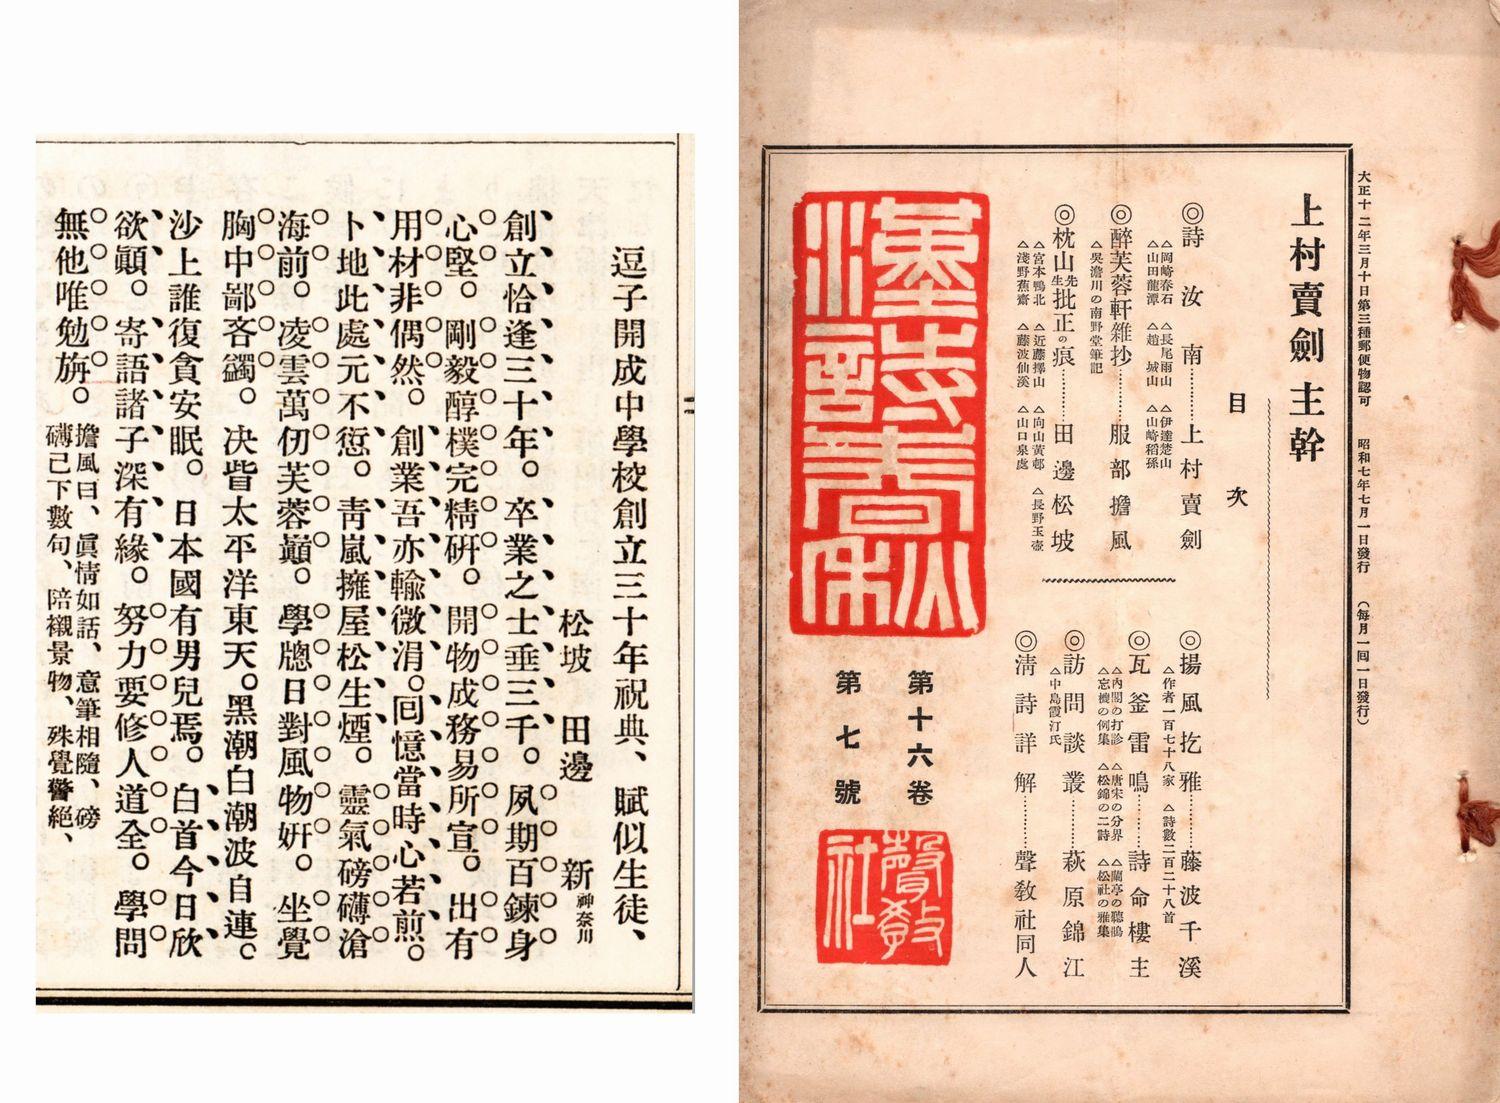 逗子開成中學校創立三十年祝典、賦似生徒、
松坡 田邊 新 神奈川
創立恰逢三十年。卒業之士垂三千。夙期百鍊身
心堅。剛毅醇樸完精硏。開物成務易所宣。出有
用材非偶然。創業吾亦輸微涓。回憶當時心若煎。
卜地此處元不愆。靑嵐擁屋松生煙。靈氣磅礴滄
海前。凌雲萬仞芙蓉巓。學牕日對風物姸。坐覺
胸中鄙吝蠲。决眥太平洋東天。黑潮白潮波自連。
沙上誰復貪安眠。日本國有男兒焉。白首今日欣
欲顚。寄語諸子深有緣。努力要修人道全。學問
無他唯勉旃。
擔風曰、眞情如話、意筆相隨、磅
礴已下數句、陪襯景物、殊覺警絕、
大正十二年三月十日第三種郵便物認可 昭和七年七月一日發行 (每月一回一日發行)
上村賣劍主幹
目次
◎詩汝南………上村賣劍
△岡崎春石 △長尾雨山 △伊達楚山
△山田龍潭 △趙城山 △山崎稻孫
◎醉芙蓉軒雜抄………服部擔風
△吳澹川の南野堂筆記
◎枕山先生批正の痕………田邊松坡
△宮本鴨北 △近藤擇山 △向山黃邨 △長野玉壺
△淺野蕉齋 △藤波仙溪 △山口泉處
◎揚風扢雅………藤波千溪
△作者一百七十八家 △詩數二百二十八首
◎瓦釜雷鳴………詩命樓主
△內閣の打診 △唐宋の分界 △蘭亭の聽鵑
△忘機の例集 △松錦の二詩 △松社の雅集
◎訪問談叢………萩原錦江
△中島霞汀氏
◎淸詩詳解………聲敎社同人
漢詩春秋
第十六卷
第七號
聲敎社